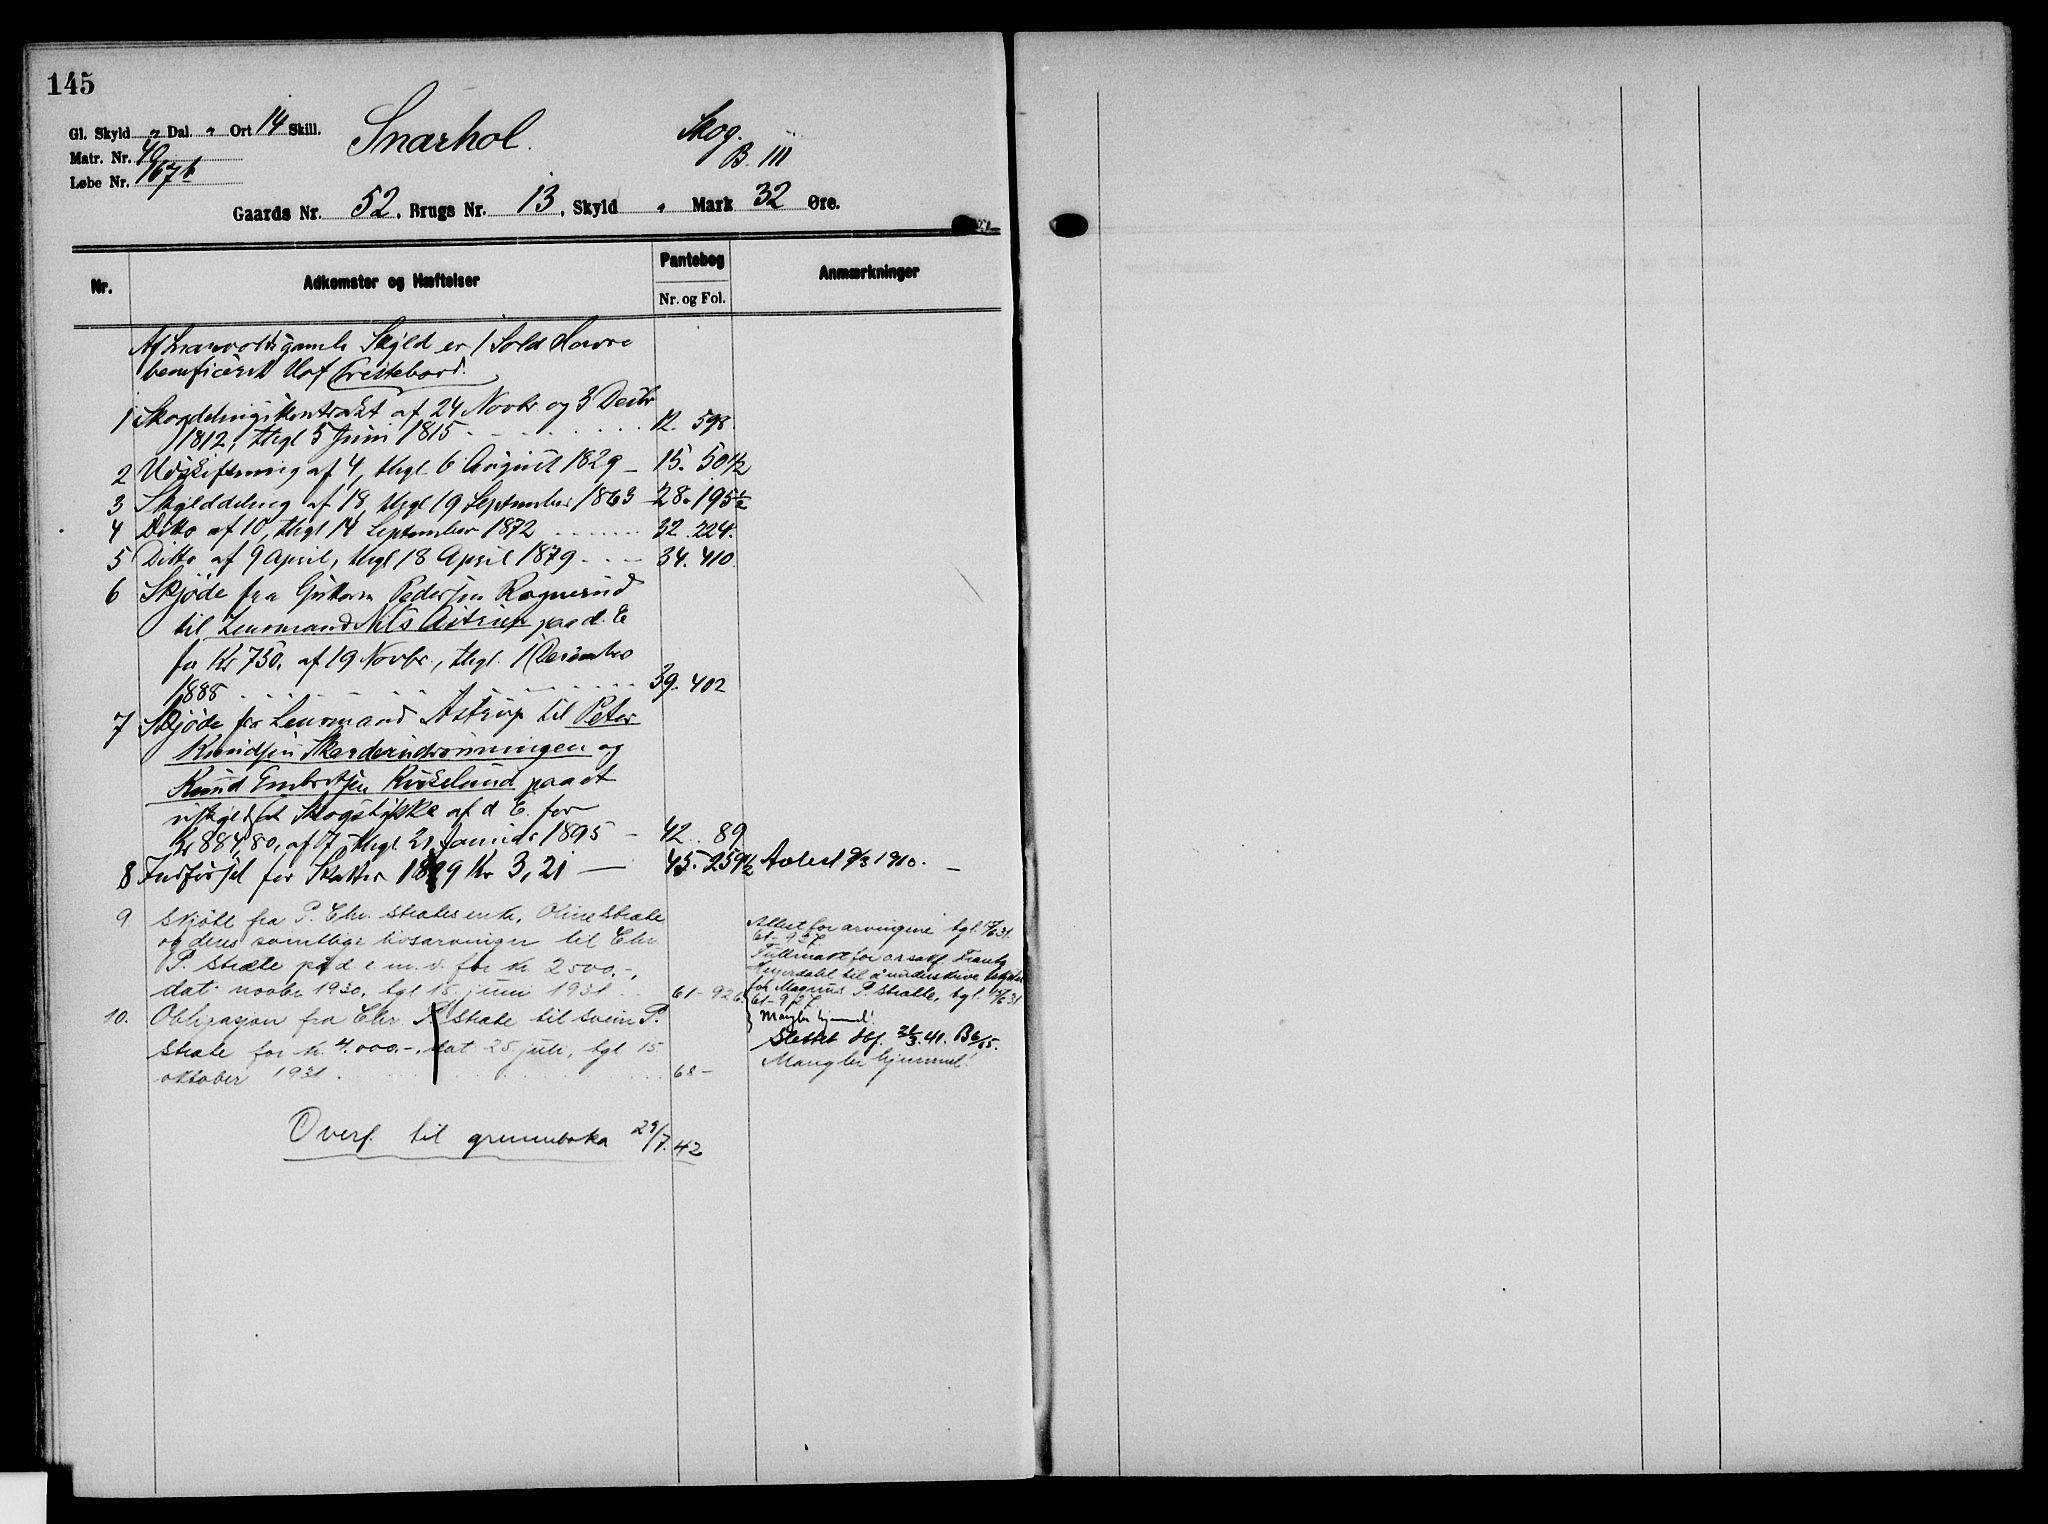 145
Gl. Skyld " Dal. " Ort 14 Skill.
Snarhol.
Skog.
B. III
Matr. Nr. 40
Løbe Nr. 167b
Gaards Nr. 52, Brugs Nr. 13, Skyld " Mark 32 Øre.
Nr.
Adkomster og Hæftelser
Pantebog
Nr. og Fol.
Anmærkninger
gamle Skyld er 1 Sold Havre
beneficeret Hof Prestebord.
1 Skogdelingskontrakt af 24 Novbr. og 3 Decbr
1812, thgl 5 Juni 1815 12. 598.
2 Udskiftning af 4, thgl. 6 August 1829 15. 501/2
3 Skylddeling af 18, thgl 19 September 1863 28. 195 1/2
4 Ditto af 10, thgl 14 September 1872 32. 224.
5 Ditto af 9 April, thgl 18 April 1879 34. 410
6 Skjøde fra Guttorm Pedersen Rognerud
til Lensmand Nils Astrup paa d. E
for Kr 750, af 19 Novbr., thgl. 1 December
1888 39. 402
7 Skjøde fra Lensmand Astrup til Peter
Knudsen Skarderudrønningen og
Knud Embretsen Kirkelund paa et
uskyldsat Skogstykke af d E. for
Kr 884,80, af 7, thgl 21 Januar 1895 42. 89
8 Indførsel for Skatter 1899 Kr 3,21 45. 259 1/2 Avlest 9/3 1910.
9 Skjøte fra P. Chr. Strætes enke, Oline Stræte
og deres samtlige livsarvinger til Chr.
P. Stræte på d. e. m. v. for kr. 2500.-,
dat. novbr 1930, tgl 15. juni 1931 61-926
Attest for arvingene tgl. 15/6 31.
61-927.
Fullmakt for o.r.sakf. Frantz
Heyerdahl til å underskrive skjøtet
for Magnus P. Stræte, tgl. 15/6 31
61-927
Mangler hjemmel!
10. Obligasjon fra Chr. P. Stræte til Svein P.
Stræte for kr. 4.000.-, dat 25 juli, tgl 15.
oktober 1931 68-
Slettet 41. B 6/65.
Mangler hjemmel!
Overf. til grunnboka 29/7.42